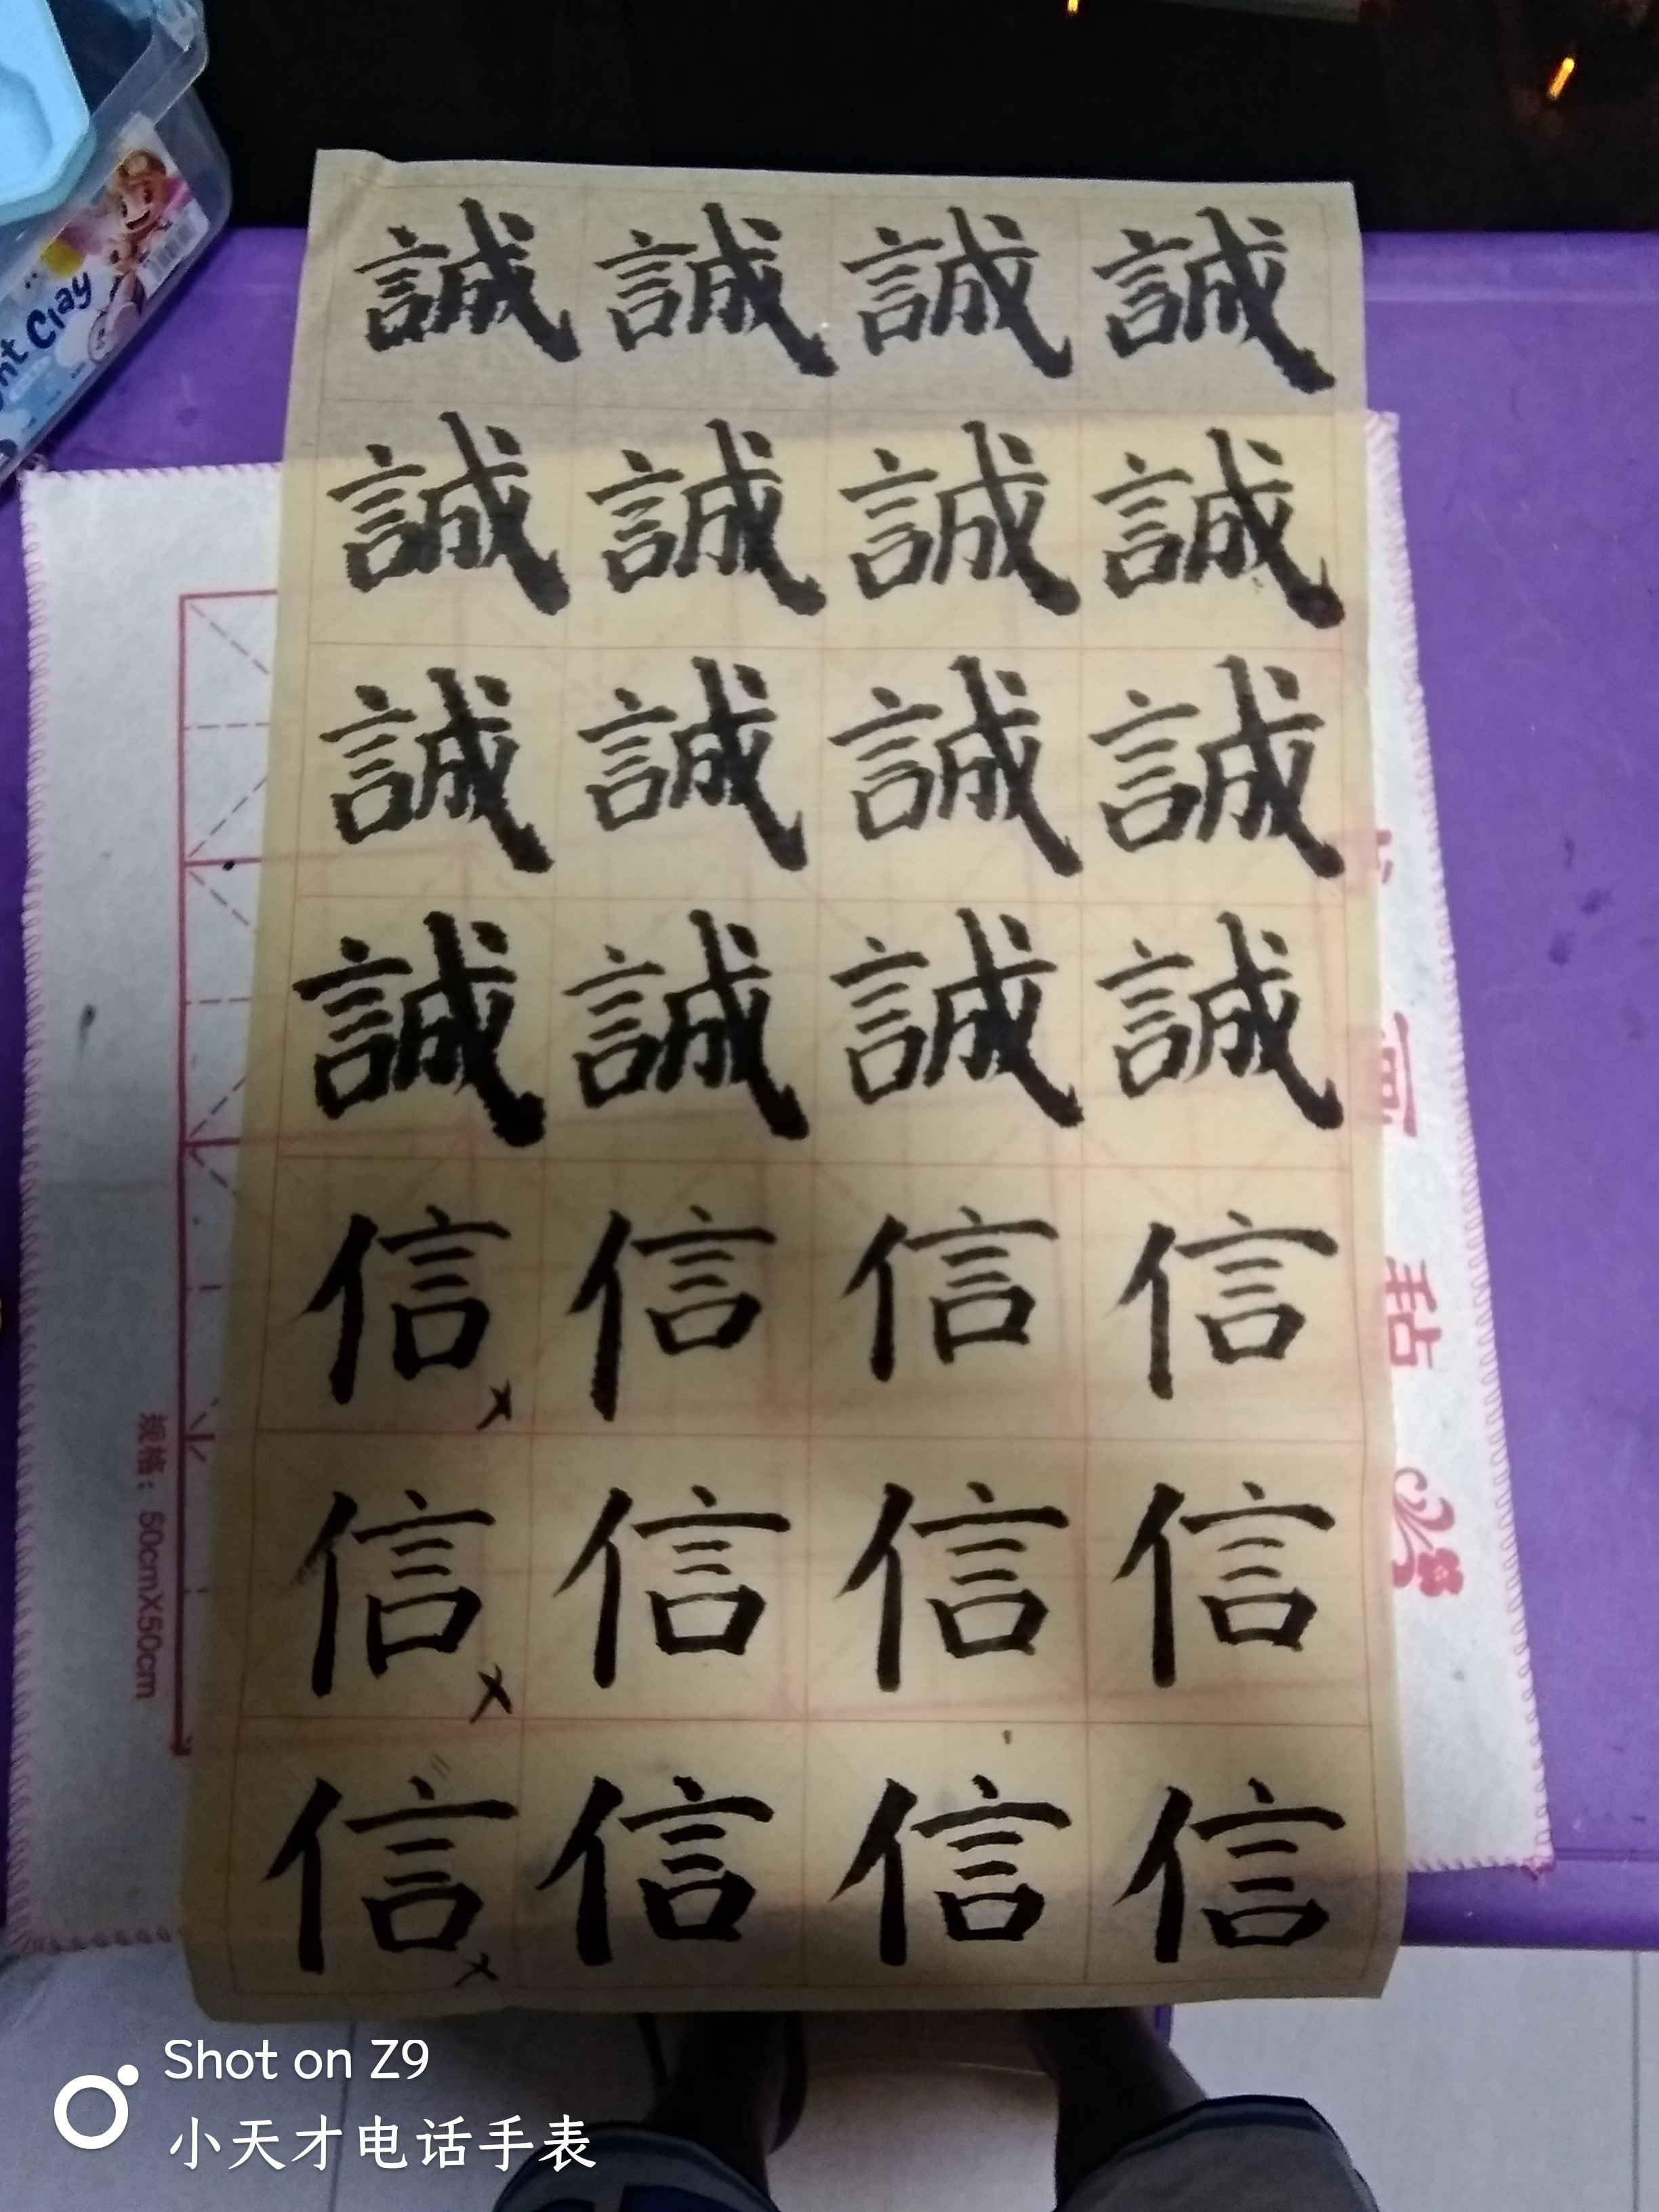 誠 誠 誠 誠
誠 誠 誠 誠
誠 誠 誠 誠
誠 誠 誠 誠
信 信 信 信
信 信 信 信
信 信 信 信
Clay
规格：50cmX50cm
画
毡
Shot on Z9
小天才电话手表